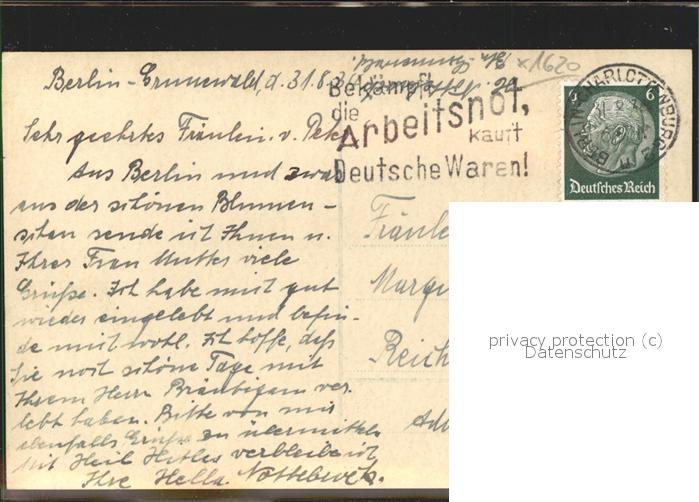 Berlin-Grunewald, d. 31.8.
x 1620
Bekämpft
die
Arbeitsnot,
kauft
Deutsche Waren!
BERLIN-CHARLOTTENBURG
6
Deutsches Reich
Sehr geehrtes Fräulein v.
Aus Berlin und zwar
aus der schönen Blumen-
sende ich Ihnen u.
Ihrer Frau Mutter viele
Grüße. Ich habe mich gut
wieder eingelebt und befin-
de mich wohl. Ich hoffe, daß
Sie noch schöne Tage mit
Ihrem Herrn Bräutigam ver-
lebt haben. Bitte von mir
ebenfalls Grüße zu übermitteln
Mit Heil Hitler verbleibe ich
Ihre Hella
Reich
privacy protection (c)
Datenschutz